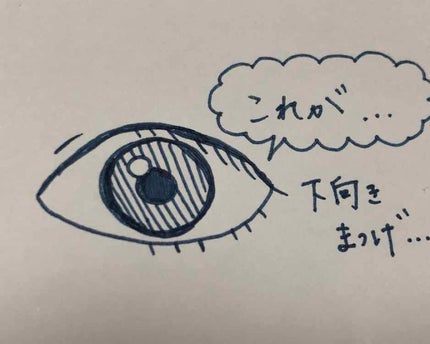 これが...
下向き
まつげ...